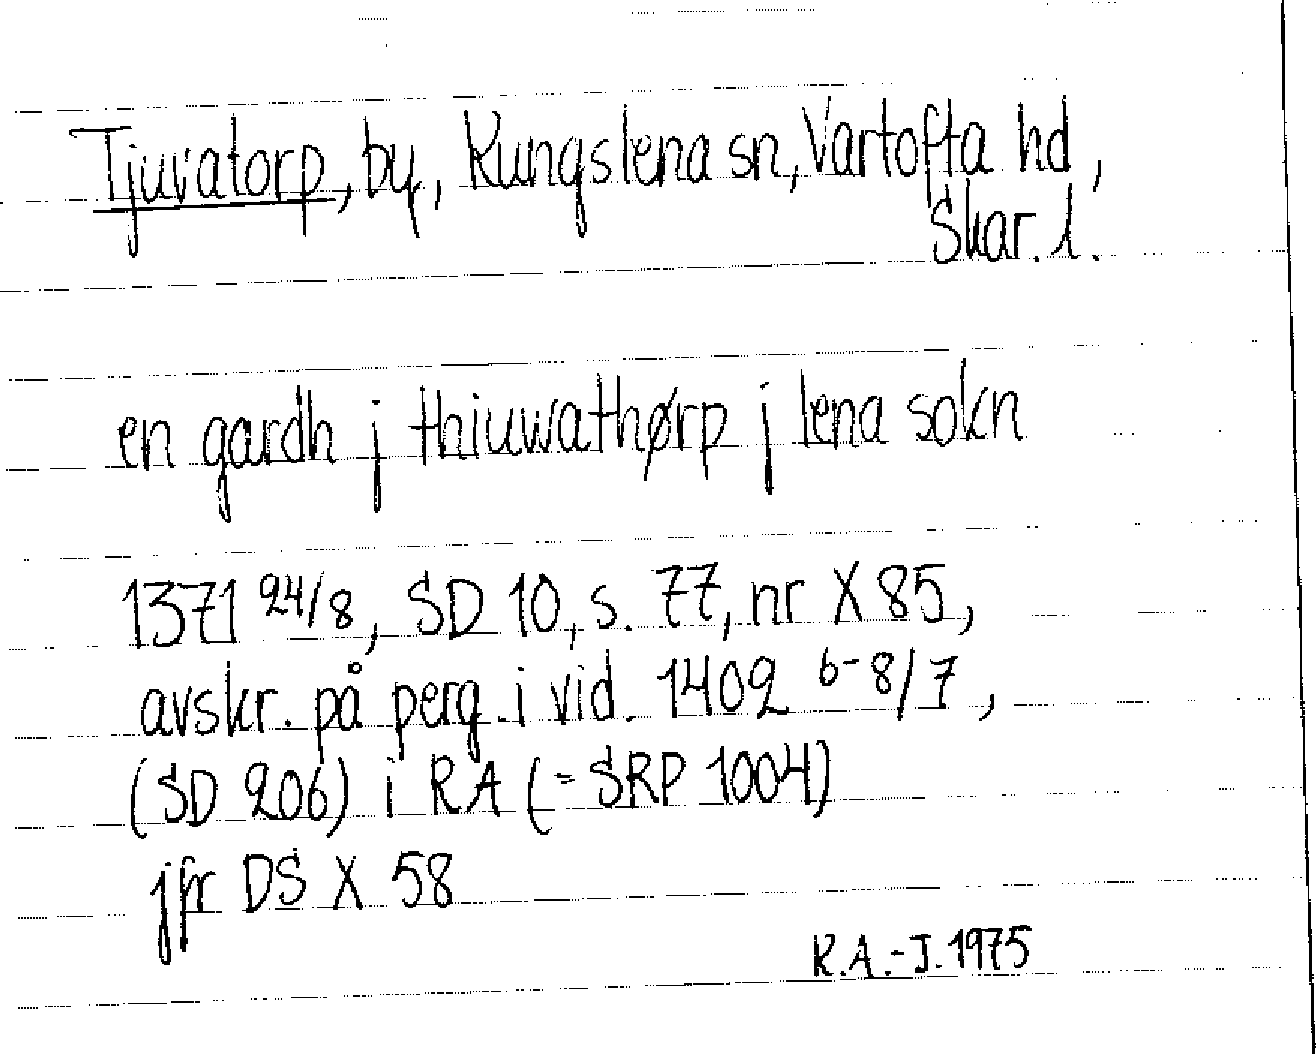 Tjuvatorp, by, Kungslena sn, Vartofta hd,
Skar. l.
en gardh j thiuwathørp j lena sokn
1371 24/8, SD 10, s. 77, nr X 85,
avskr. på perg. i vid. 1402 6-8/7,
(SD 206) i RA (= SRP 1004)
jfr DS X 58
K.A.-J. 1975